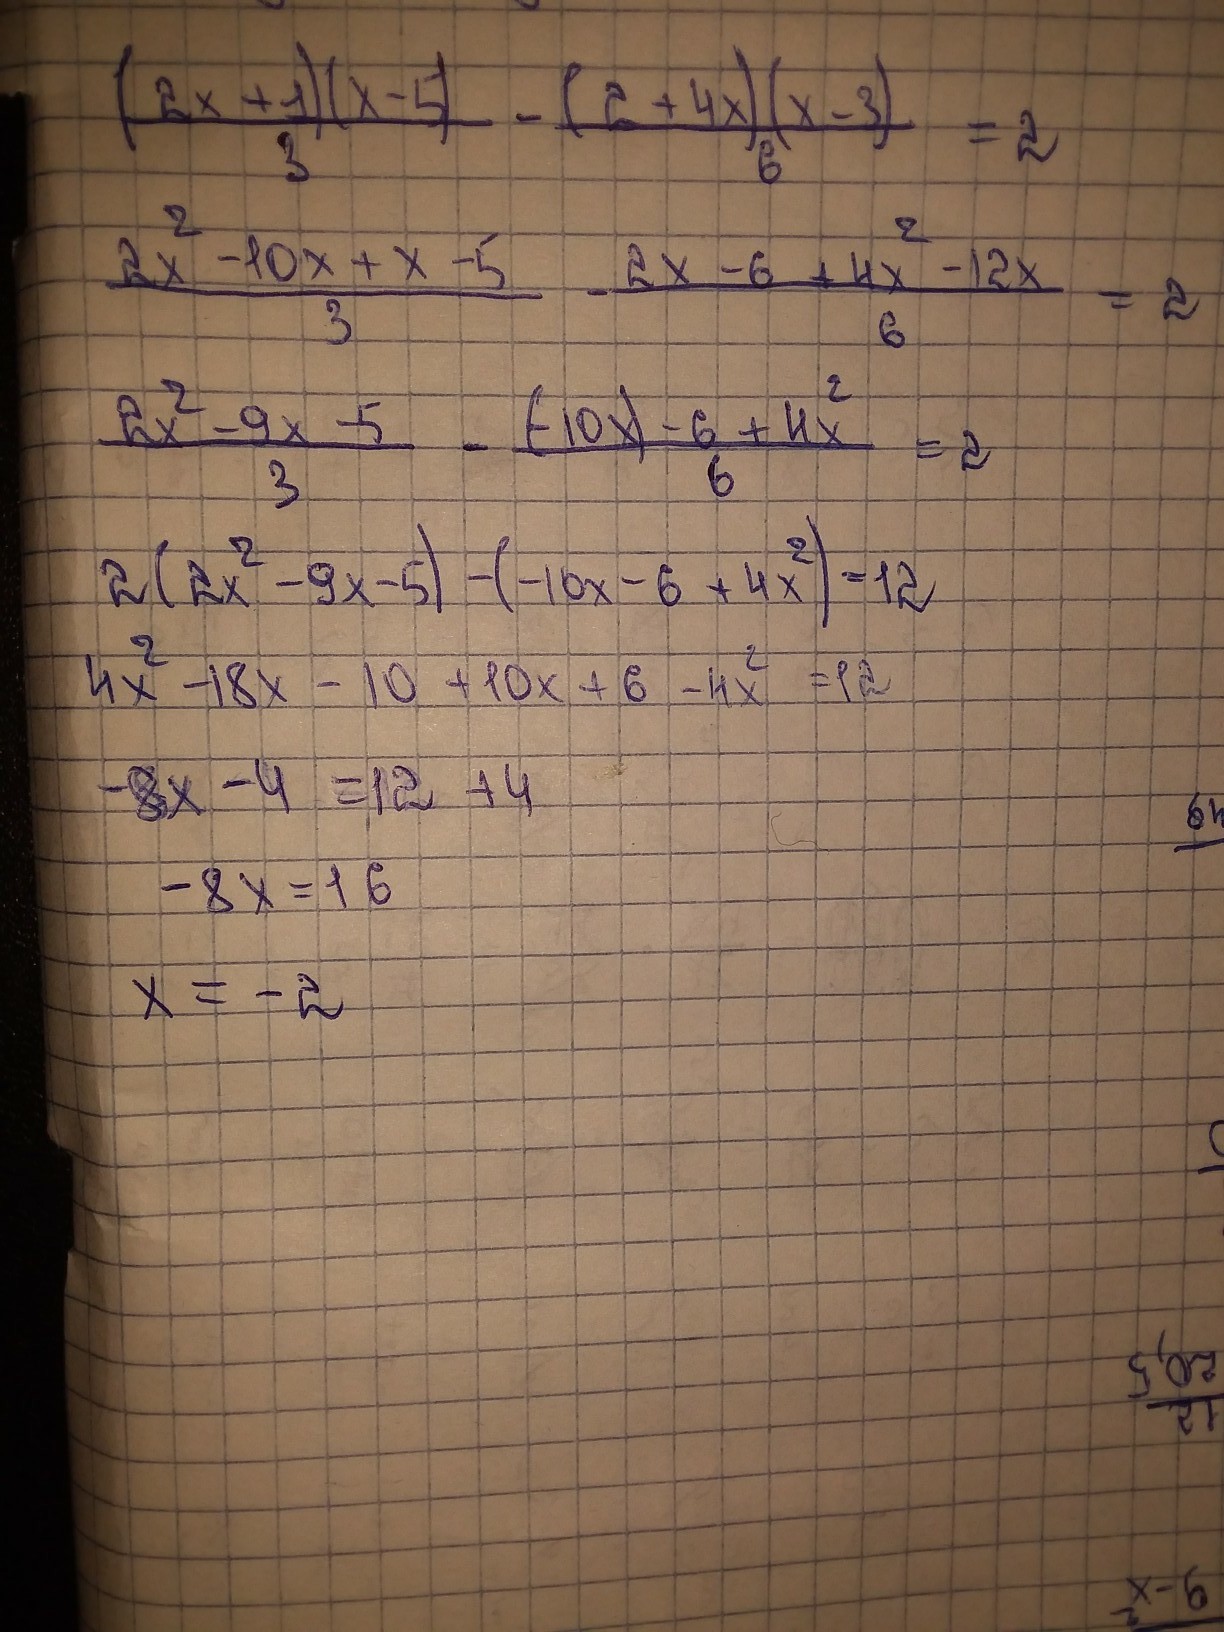 (2x + 1)(x - 5)/3 - (2 + 4x)(x - 3)/6 = 2
2x² - 10x + x - 5/3 - 2x - 6 + 4x² - 12x/6 = 2
2x² - 9x - 5/3 - (-10x) - 6 + 4x²/6 = 2
2(2x² - 9x - 5) - (-10x - 6 + 4x²) = 12
4x² - 18x - 10 + 10x + 6 - 4x² = 12
-8x - 4 = 12 + 4
-8x = 16
x = -2
49
20,5
12
x - 6